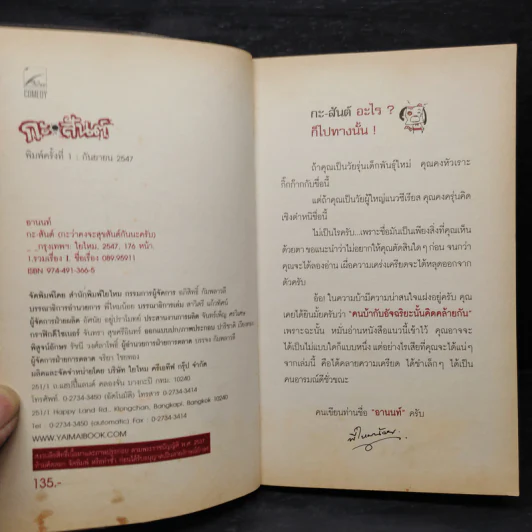 COMEDY
กะ•สันต์
พิมพ์ครั้งที่ 1 : กันยายน 2547
อานนท์
กะ-สันต์ (กะว่าคงจะสุขสันต์กันนะครับ)
. . .กรุงเทพฯ: ใยไหม, 2547, 176 หน้า.
1.รวมเรื่อง I. ชื่อเรื่อง 089.95911
ISBN 974-491-366-5
จัดพิมพ์โดย สำนักพิมพ์ใยไหม กรรมการผู้จัดการ
ผลิตและจัดจำหน่ายโดย บริษัท ใยไหม ครีเอทีฟ กรุ๊ป จำกัด
251/1 ถ.แฮปปี้แลนด์ คลองจั่น บางกะปิ กทม. 10240
โทรศัพท์. 0-2734-3450 (อัตโนมัติ) โทรสาร 0-2734-3414
251/1 Happy Land Rd., Klongchan, Bangkapi, Bangkok 10240
Tel : 0-2734-3450 (automatic) Fax : 0-2734-3414
WWW.YAIMAIBOOK.COM
135.-
กะ-สันต์ อะไร ?
ก็ไปทางนั้น !
ถ้าคุณเป็นวัยรุ่นเด็กพันธุ์ใหม่ คุณคงหัวเราะ
กิ๊กก๊ากกับชื่อนี้
แต่ถ้าคุณเป็นวัยผู้ใหญ่แนวซีเรียส คุณคงครุ่นคิด
เชิงตำหนิชื่อนี้
ไม่เป็นไรครับ...เพราะชื่อมันเป็นเพียงสิ่งที่คุณเห็น
ด้วยตา ขอแนะนำว่าไม่อยากให้คุณตัดสินใดๆ ก่อน จนกว่า
คุณจะได้ลองอ่าน เผื่อความเคร่งเครียดจะได้หลุดออกจาก
ตัวครับ
อ้อ! ในความบ้ามีความน่าสนใจแฝงอยู่ครับ คุณ
เคยได้ยินมั้ยครับว่า "คนบ้ากับอัจฉริยะนั้นคิดคล้ายกัน"
เพราะฉะนั้น หมั่นอ่านหนังสือแนวนี้เข้าไว้ คุณอาจจะ
ได้เป็นไม่แบบใดก็แบบหนึ่ง แต่อย่างไรเสียที่คุณจะได้แน่ๆ
จากเล่มนี้ คือได้คลายความเครียด ได้ขำเล็กๆ ได้เป็น
คนอารมณ์ดีชั่วขณะ
คนเขียนท่านชื่อ "อานนท์" ครับ